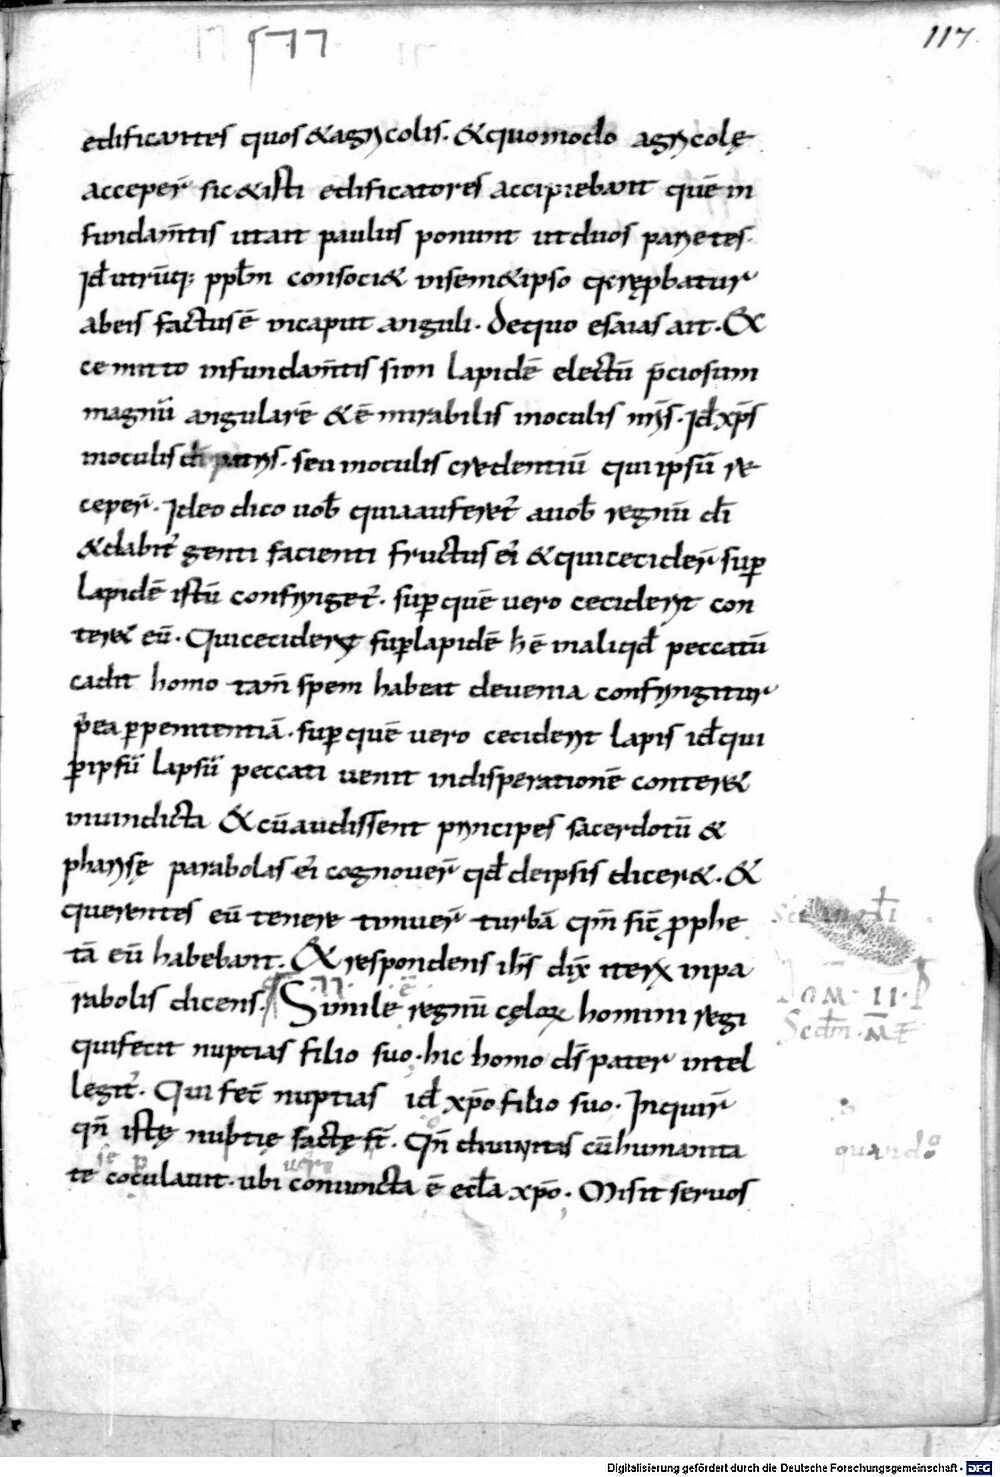 117
edificantes quos & agricolis. & quomodo agricolę
acceper̄ sic & isti edificatores accipiebant quē in
fundam̄tis ut ait paulus ponunt ut duos parietes.
id ē utrūq; pplm̄ consoci& in sem&ipso
ab eis factus ē in caput anguli. De quo esaias ait. Ec
ce mitto in fundam̄tis sion lapidē electū p̄ciosum
magnū angularē & ē mirabilis in oculis nr̄is. Id xp̄s
in oculis dī patris. seu in oculis credentiū qui ipsū re
ceper̄. Ideo dico uob̄ quia auferet᷑ a uob̄ regnū dī
& dabit᷑ genti facienti fructus ei᷑ & qui cecider̄ sup̄
lapidē istū confringet᷑. sup̄ quē uero ceciderit con
ter& eū. Qui ceciderit sup̄ lapidē h̄ ē in aliqd̄ peccatū
cadit homo tam̄ spem habeat de uenia confringitur
p̄ ea p̄ penitentiā. sup̄ quē uero ceciderit lapis id̄ qui
p̄ ipsū lapsū peccati uenit in disperationē conter&
in uindicta & cū audissent principes sacerdotū &
pharisę parabolas ei᷑ cognouer̄ qd̄ de ipsis dicer&. &
querentes eū tenere timuer̄ turbā qm̄ sic̄ p̄phe
tā eū habebant. & respondens ih̄s dix̄ iterū in pa
rabolis dicens. Simile ē regnū cęloꝝ homini regi
qui fecit nuptias filio suo. hic homo ds̄ pater intel
legit᷑. Qui fec̄ nuptias id̄ xp̄o filio suo. Inquir̄
qn̄ istę nubtię factę st̄. Qn̄ diuinitas cū humanita
te se copulauit. ubi uere coniuncta ē eccl̄a xp̄o. Misit seruos
Dom̄ II. P
Scdm̄ M̄
quando
Digitalisierung gefördert durch die Deutsche Forschungsgemeinschaft - DFG